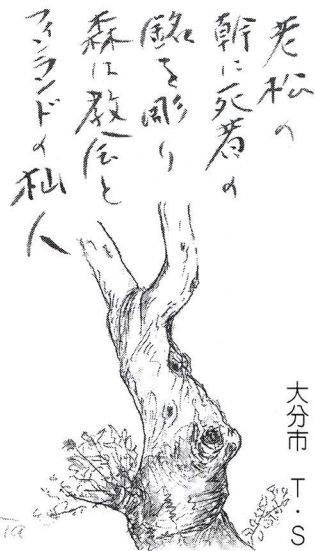 老松の
幹に死者の
銘を彫り
森は教会と
フィンランドの杣人
大分市 T・S